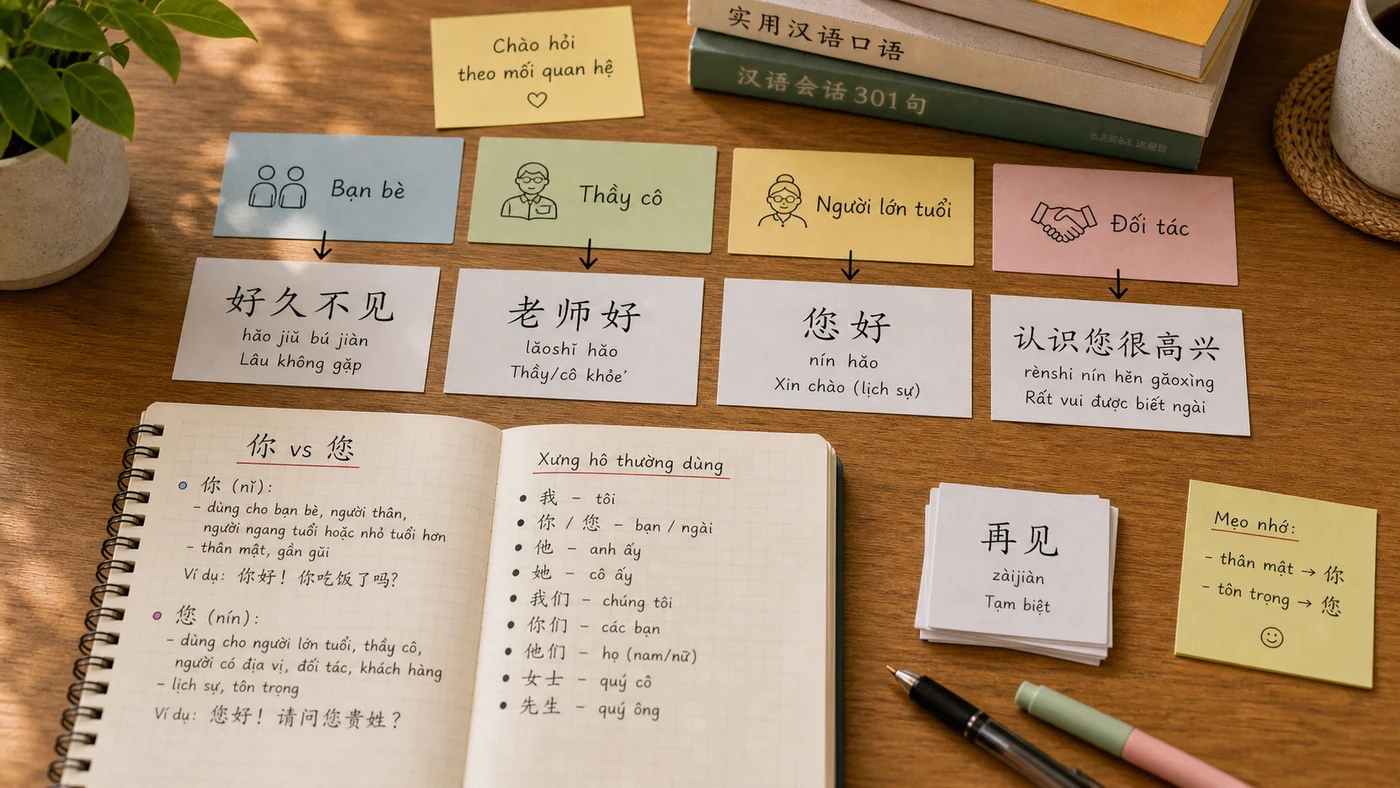 Chào hỏi
theo mối quan hệ
实用汉语口语
汉语会话301句
Bạn bè
Thầy cô
Người lớn tuổi
Đối tác
好久不见
hǎo jiǔ bú jiàn
Lâu không gặp
老师好
lǎoshī hǎo
Thầy/cô khỏe’
您好
nín hǎo
Xin chào (lịch sự)
认识您很高兴
rènshi nín hěn gāoxìng
Rất vui được biết ngài
你 vs 您
你 (nǐ):
– dùng cho bạn bè, người thân,
người ngang tuổi hoặc nhỏ tuổi hơn
– thân mật, gần gũi
Ví dụ: 你好！你吃饭了吗？
您 (nín):
– dùng cho người lớn tuổi, thầy cô,
người có địa vị, đối tác, khách hàng
– lịch sự, tôn trọng
Ví dụ: 您好！请问您贵姓？
Xưng hô thường dùng
• 我 – tôi
• 你 / 您 – bạn / ngài
• 他 – anh ấy
• 她 – cô ấy
• 我们 – chúng tôi
• 你们 – các bạn
• 他们 – họ (nam/nữ)
• 女士 – quý cô
• 先生 – quý ông
再见
zàijiàn
Tạm biệt
Mẹo nhớ:
– thân mật → 你
– tôn trọng → 您